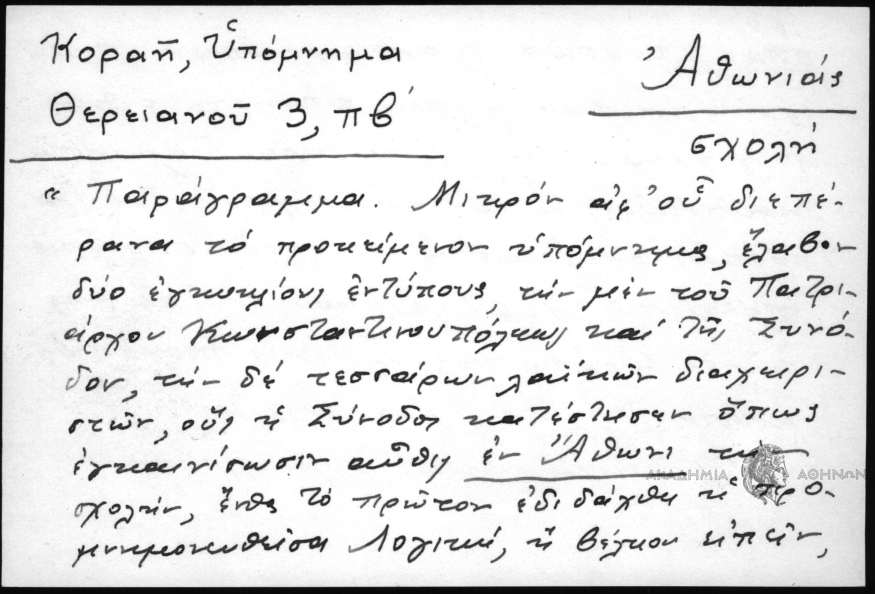 Κοραῆ, Ὑπόμνημα
Θερειανοῦ 3, πβ΄
Ἀθωνιάς
σχολή
"Παράγραμμα. Μικρόν ἀφ' οὗ διεπέ-
ρανα τό προκείμενον ὑπόμνημα, ἔλαβον
δύο ἐγκυκλίους ἐντύπους, τήν μέν τοῦ Πατρι-
άρχου Κωνσταντινουπόλεως καί τῆς Συνό-
δου, τήν δέ τεσσάρων λαϊκῶν διαχειρι-
στῶν, οὕς ἡ Σύνοδος κατέστησεν ὅπως
ἐγκαινίσωσιν αὖθις ἐν Ἄθωνι τήν
σχολήν, ἔνθα τό πρῶτον ἐδιδάχθη ἡ προ-
μνημονευθεῖσα Λογική, ἤ βέλτιον εἰπεῖν,
ΑΚΑΔΗΜΙΑ ΑΘΗΝΩΝ